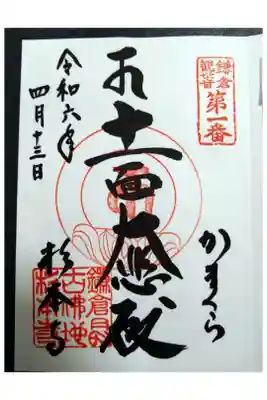 鎌倉
観世音
第一番
かまくら
十一面大悲殿
杉本寺
令和六年
四月十三日
鎌倉最
古佛地
杉本寺